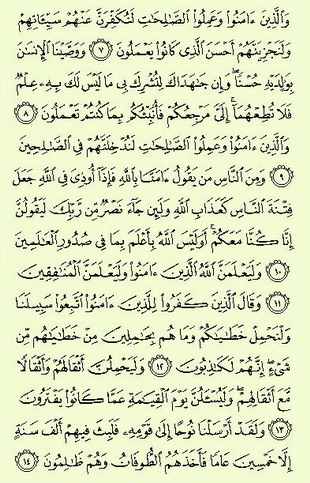 وَالَّذِينَ ءَامَنُوا۟ وَعَمِلُوا۟ الصَّـٰلِحَـٰتِ لَنُكَفِّرَنَّ عَنْهُمْ سَيِّـَٔاتِهِمْ
وَلَنَجْزِيَنَّهُمْ أَحْسَنَ الَّذِى كَانُوا۟ يَعْمَلُونَ ٧ وَوَصَّيْنَا الْإِنسَـٰنَ
بِوَٰلِدَيْهِ حُسْنًا ۖ وَإِن جَـٰهَدَاكَ لِتُشْرِكَ بِى مَا لَيْسَ لَكَ بِهِۦ عِلْمٌ
فَلَا تُطِعْهُمَآ ۚ إِلَىَّ مَرْجِعُكُمْ فَأُنَبِّئُكُم بِمَا كُنتُمْ تَعْمَلُونَ ٨
وَالَّذِينَ ءَامَنُوا۟ وَعَمِلُوا۟ الصَّـٰلِحَـٰتِ لَنُدْخِلَنَّهُمْ فِى الصَّـٰلِحِينَ
٩ وَمِنَ النَّاسِ مَن يَقُولُ ءَامَنَّا بِاللَّهِ فَإِذَآ أُوذِىَ فِى اللَّهِ جَعَلَ
فِتْنَةَ النَّاسِ كَعَذَابِ اللَّهِ وَلَئِن جَآءَ نَصْرٌ مِّن رَّبِّكَ لَيَقُولُنَّ
إِنَّا كُنَّا مَعَكُمْ ۚ أَوَلَيْسَ اللَّهُ بِأَعْلَمَ بِمَا فِى صُدُورِ الْعَـٰلَمِينَ
١٠ وَلَيَعْلَمَنَّ اللَّهُ الَّذِينَ ءَامَنُوا۟ وَلَيَعْلَمَنَّ الْمُنَـٰفِقِينَ
١١ وَقَالَ الَّذِينَ كَفَرُوا۟ لِلَّذِينَ ءَامَنُوا۟ اتَّبِعُوا۟ سَبِيلَنَا
وَلْنَحْمِلْ خَطَـٰيَـٰكُمْ وَمَا هُم بِحَـٰمِلِينَ مِنْ خَطَـٰيَـٰهُم مِّن
شَىْءٍ ۖ إِنَّهُمْ لَكَـٰذِبُونَ ١٢ وَلَيَحْمِلُنَّ أَثْقَالَهُمْ وَأَثْقَالًا
مَّعَ أَثْقَالِهِمْ ۖ وَلَيُسْـَٔلُنَّ يَوْمَ الْقِيَـٰمَةِ عَمَّا كَانُوا۟ يَفْتَرُونَ
١٣ وَلَقَدْ أَرْسَلْنَا نُوحًا إِلَىٰ قَوْمِهِۦ فَلَبِثَ فِيهِمْ أَلْفَ سَنَةٍ
إِلَّا خَمْسِينَ عَامًا فَأَخَذَهُمُ الطُّوفَانُ وَهُمْ ظَـٰلِمُونَ ١٤